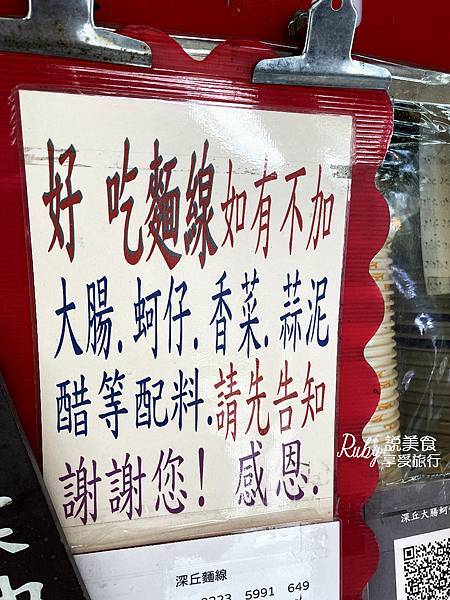 好 吃麵線如有不加
大腸.蚵仔.香菜.蒜泥
醋等配料.請先告知
謝謝您! 感恩.
Ruby說美食
享受旅行
深丘大腸蚵
深丘麵線
5991 649